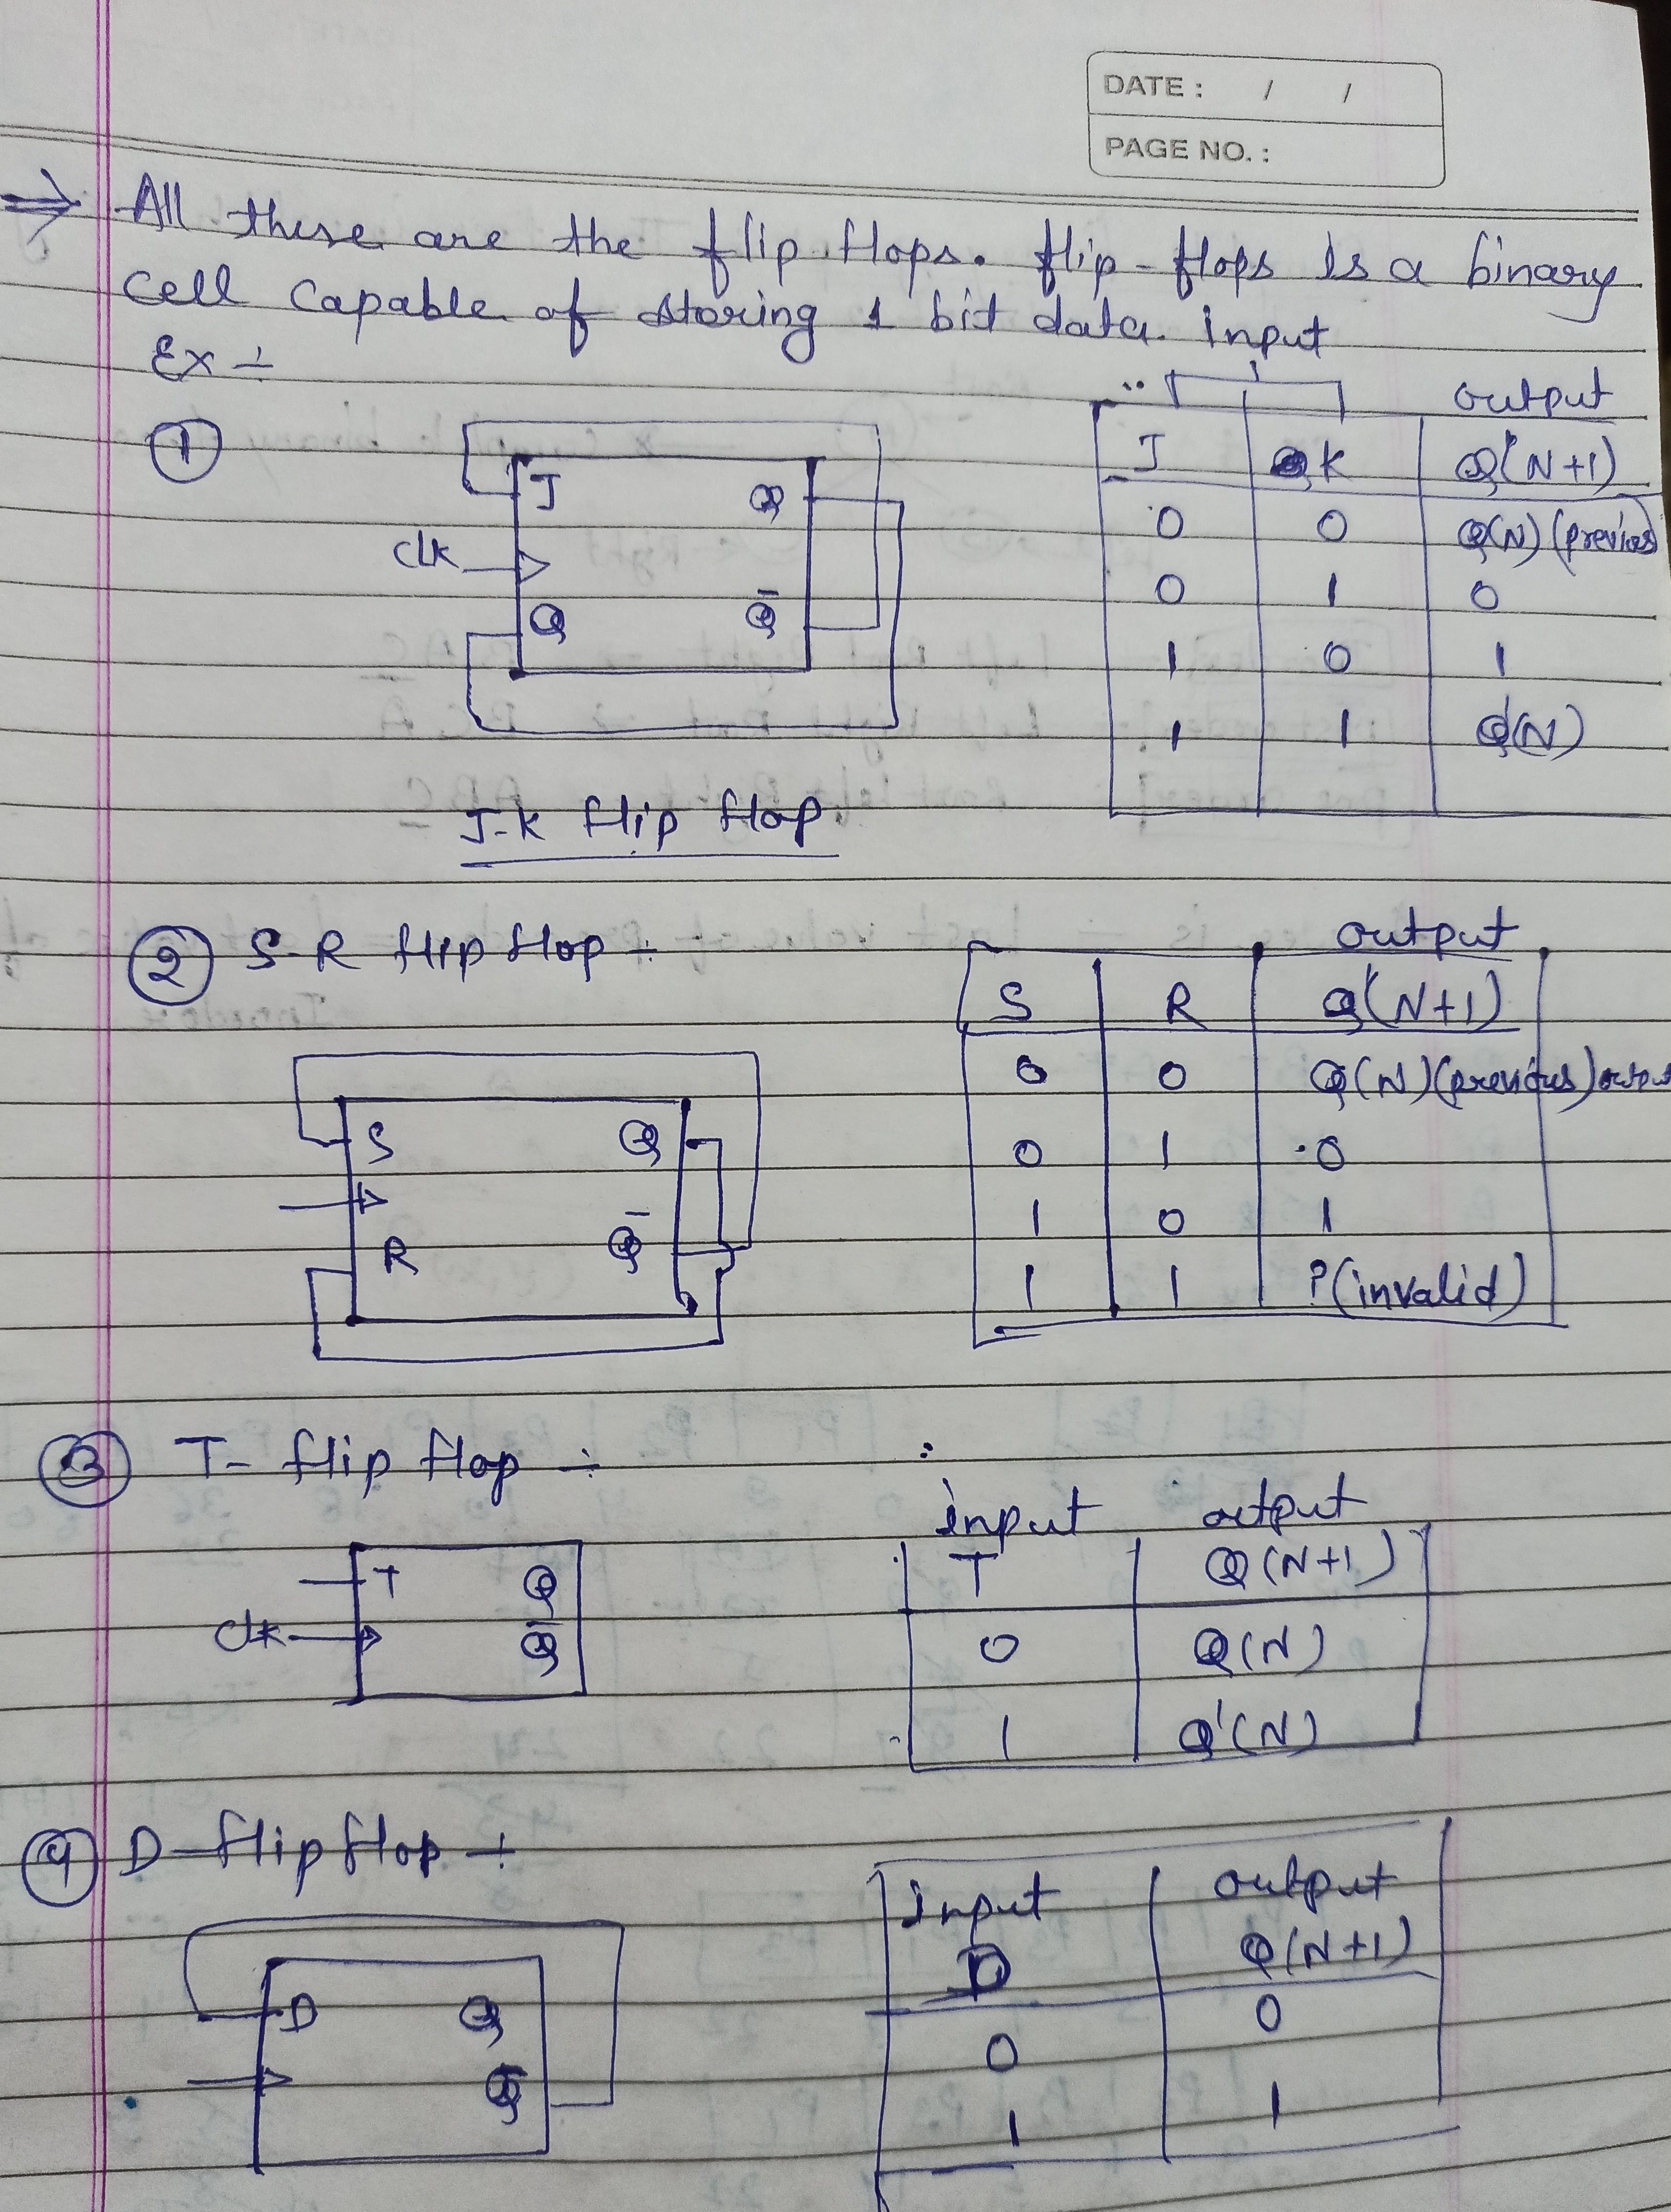 DATE : / /
PAGE NO. :
⇒ All these are the flip flops. flip-flops is a binary
cell capable of storing 1 bit data. input
Ex ÷
output
①
J K Q(N+1)
J Q
0 0 Q(N) (previos)
clk
0 1 0
Q Q̄
1 0 1
1 1 Q'(N)
J-K flip flop.
② S-R flip flop ÷
output
S R Q(N+1)
0 0 Q(N) (previous) output
S Q
0 1 0
1 0 1
R Q̄
1 1 ? (invalid)
③ T- flip flop ÷
input output
T Q(N+1)
T Q
0 Q(N)
clk Q̄
1 Q'(N)
④ D-flip flop ÷
input output
D Q(N+1)
D Q
0 0
Q̄
1 1